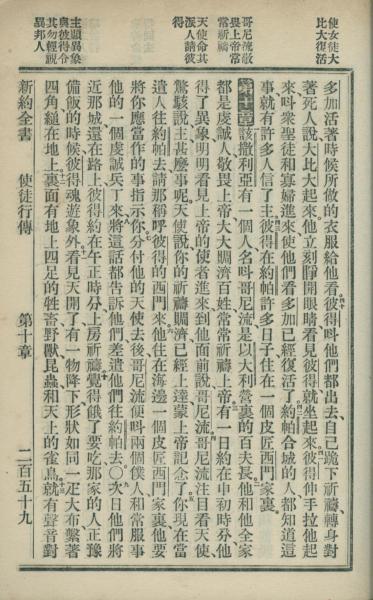 使女徒大
比大復活
哥尼流敬
畏上帝常
常祈禱
天使命其
派人請彼
得
主顯異象
與彼得令
其勿輕視
異邦人
多加活著時候所做的衣服給他看彼得叫他們都出去自己跪下祈禱轉身對
著死人說大比大起來他立刻睜開眼睛看見彼得就坐起來彼得伸手拉他起
來叫衆聖徒和寡婦進來使他們看多加已經復活了約帕合城的人都知道這
事就有許多人信了主彼得在約帕許多日子住在一個皮匠西門家裏
第十章該撒利亞有一個人名叫哥尼流是以大利營裏的百夫長他和他全家
都是虔誠人敬畏上帝大大賙濟百姓常常祈禱上帝有一日約在申初時分他
得了異象明明看見上帝的使者進來到他面前說哥尼流哥尼流注目看天使
驚駭說主甚麼事呢天使說你的祈禱賙濟已經上達蒙上帝記念了你現在當
遣人往約帕去請那稱呼彼得的西門來他住在海邊一個皮匠西門家裏他要
將你應當作的事指示你分付他的天使去後哥尼流便叫兩個僕人和常服事
他的一個虔誠兵丁來將這話都告訴他們差遣他們往約帕去○次日他們將
近那城還在路上彼得約在午正時分上房祈禱覺得餓了要吃那家的人正豫
備飯的時候彼得魂遊象外看見天開了有一物降下形狀如同一疋大布繫著
四角縋在地上裏面有地上四足的牲畜野獸昆蟲和天上的雀鳥就有聲音對
新約全書 使徒行傳 第十章 二百五十九